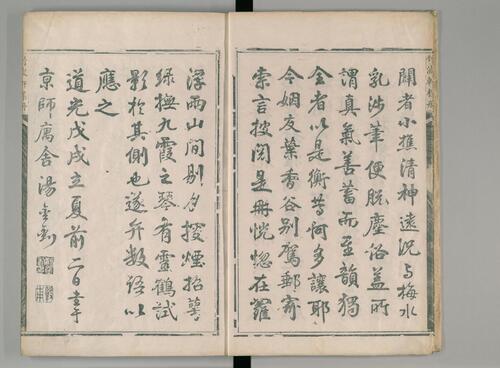 閒者小憔清神遠況与梅水
乳涉筆便脫塵俗蓋所
謂真氣善蓄而至韻獨
全者以是衡昔何多讓耶
今姻友葉香谷別駕郵寄
索言披閱是冊恍惚在羅
浮兩山間剔夕授煙招萼
綠撫九霞之琴有靈鶴試
影於其側也遂弁數語以
應之
道光戊戌立夏前二日書于
京師寓舍湯金釗